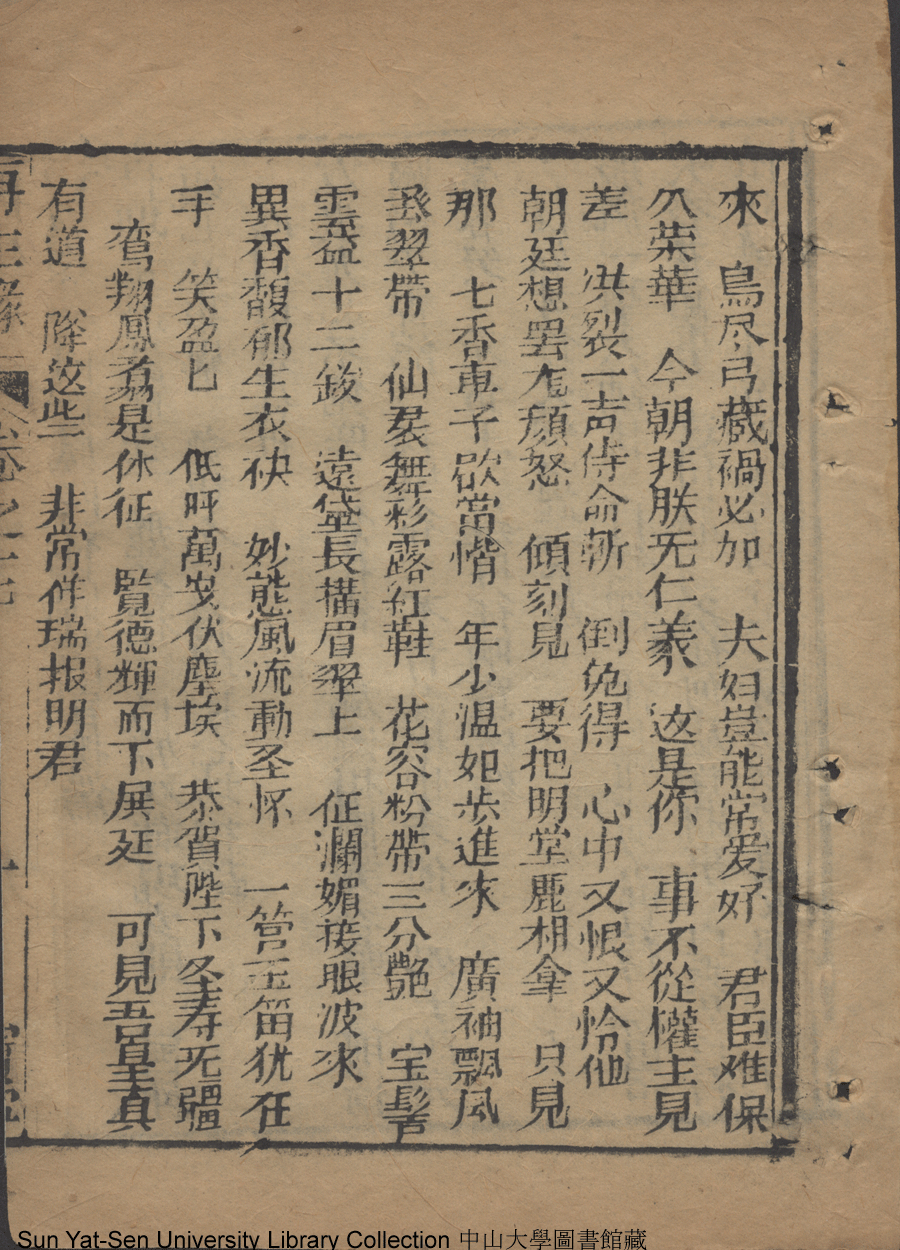 來 鳥尽弓藏禍必加 夫妇豈能常爱好 君臣难保
久荣華 今朝非朕无仁義 这是你 事不從權主見
差 洪裂一声侍命斬 倒免得 心中又恨又怜他
朝廷想罢尨顔怒 傾刻見 要把明堂鹿相拿 只見
那 七香車子欧當惜 年少温如步進來 廣袖飄風
翠帶 仙裙舞彩露红鞋 花容粉帶三分艷 宝髻
雲盆十二釵 遠黛長描眉翠上 征瀾媚接眼波來
異香馥郁生衣袂 妙態風流動圣怀 一管玉笛犹在
手 笑盈匕 低呼萬岁伏塵埃 恭賀陛下圣寿无疆
鸾翔鳳翥是休征 覧德輝而下展廷 可見吾皇真
有道 降这些 非常佯瑞报明君
再生緣 卷之十七
Sun Yat-Sen University Library Collection 中山大學圖書館藏